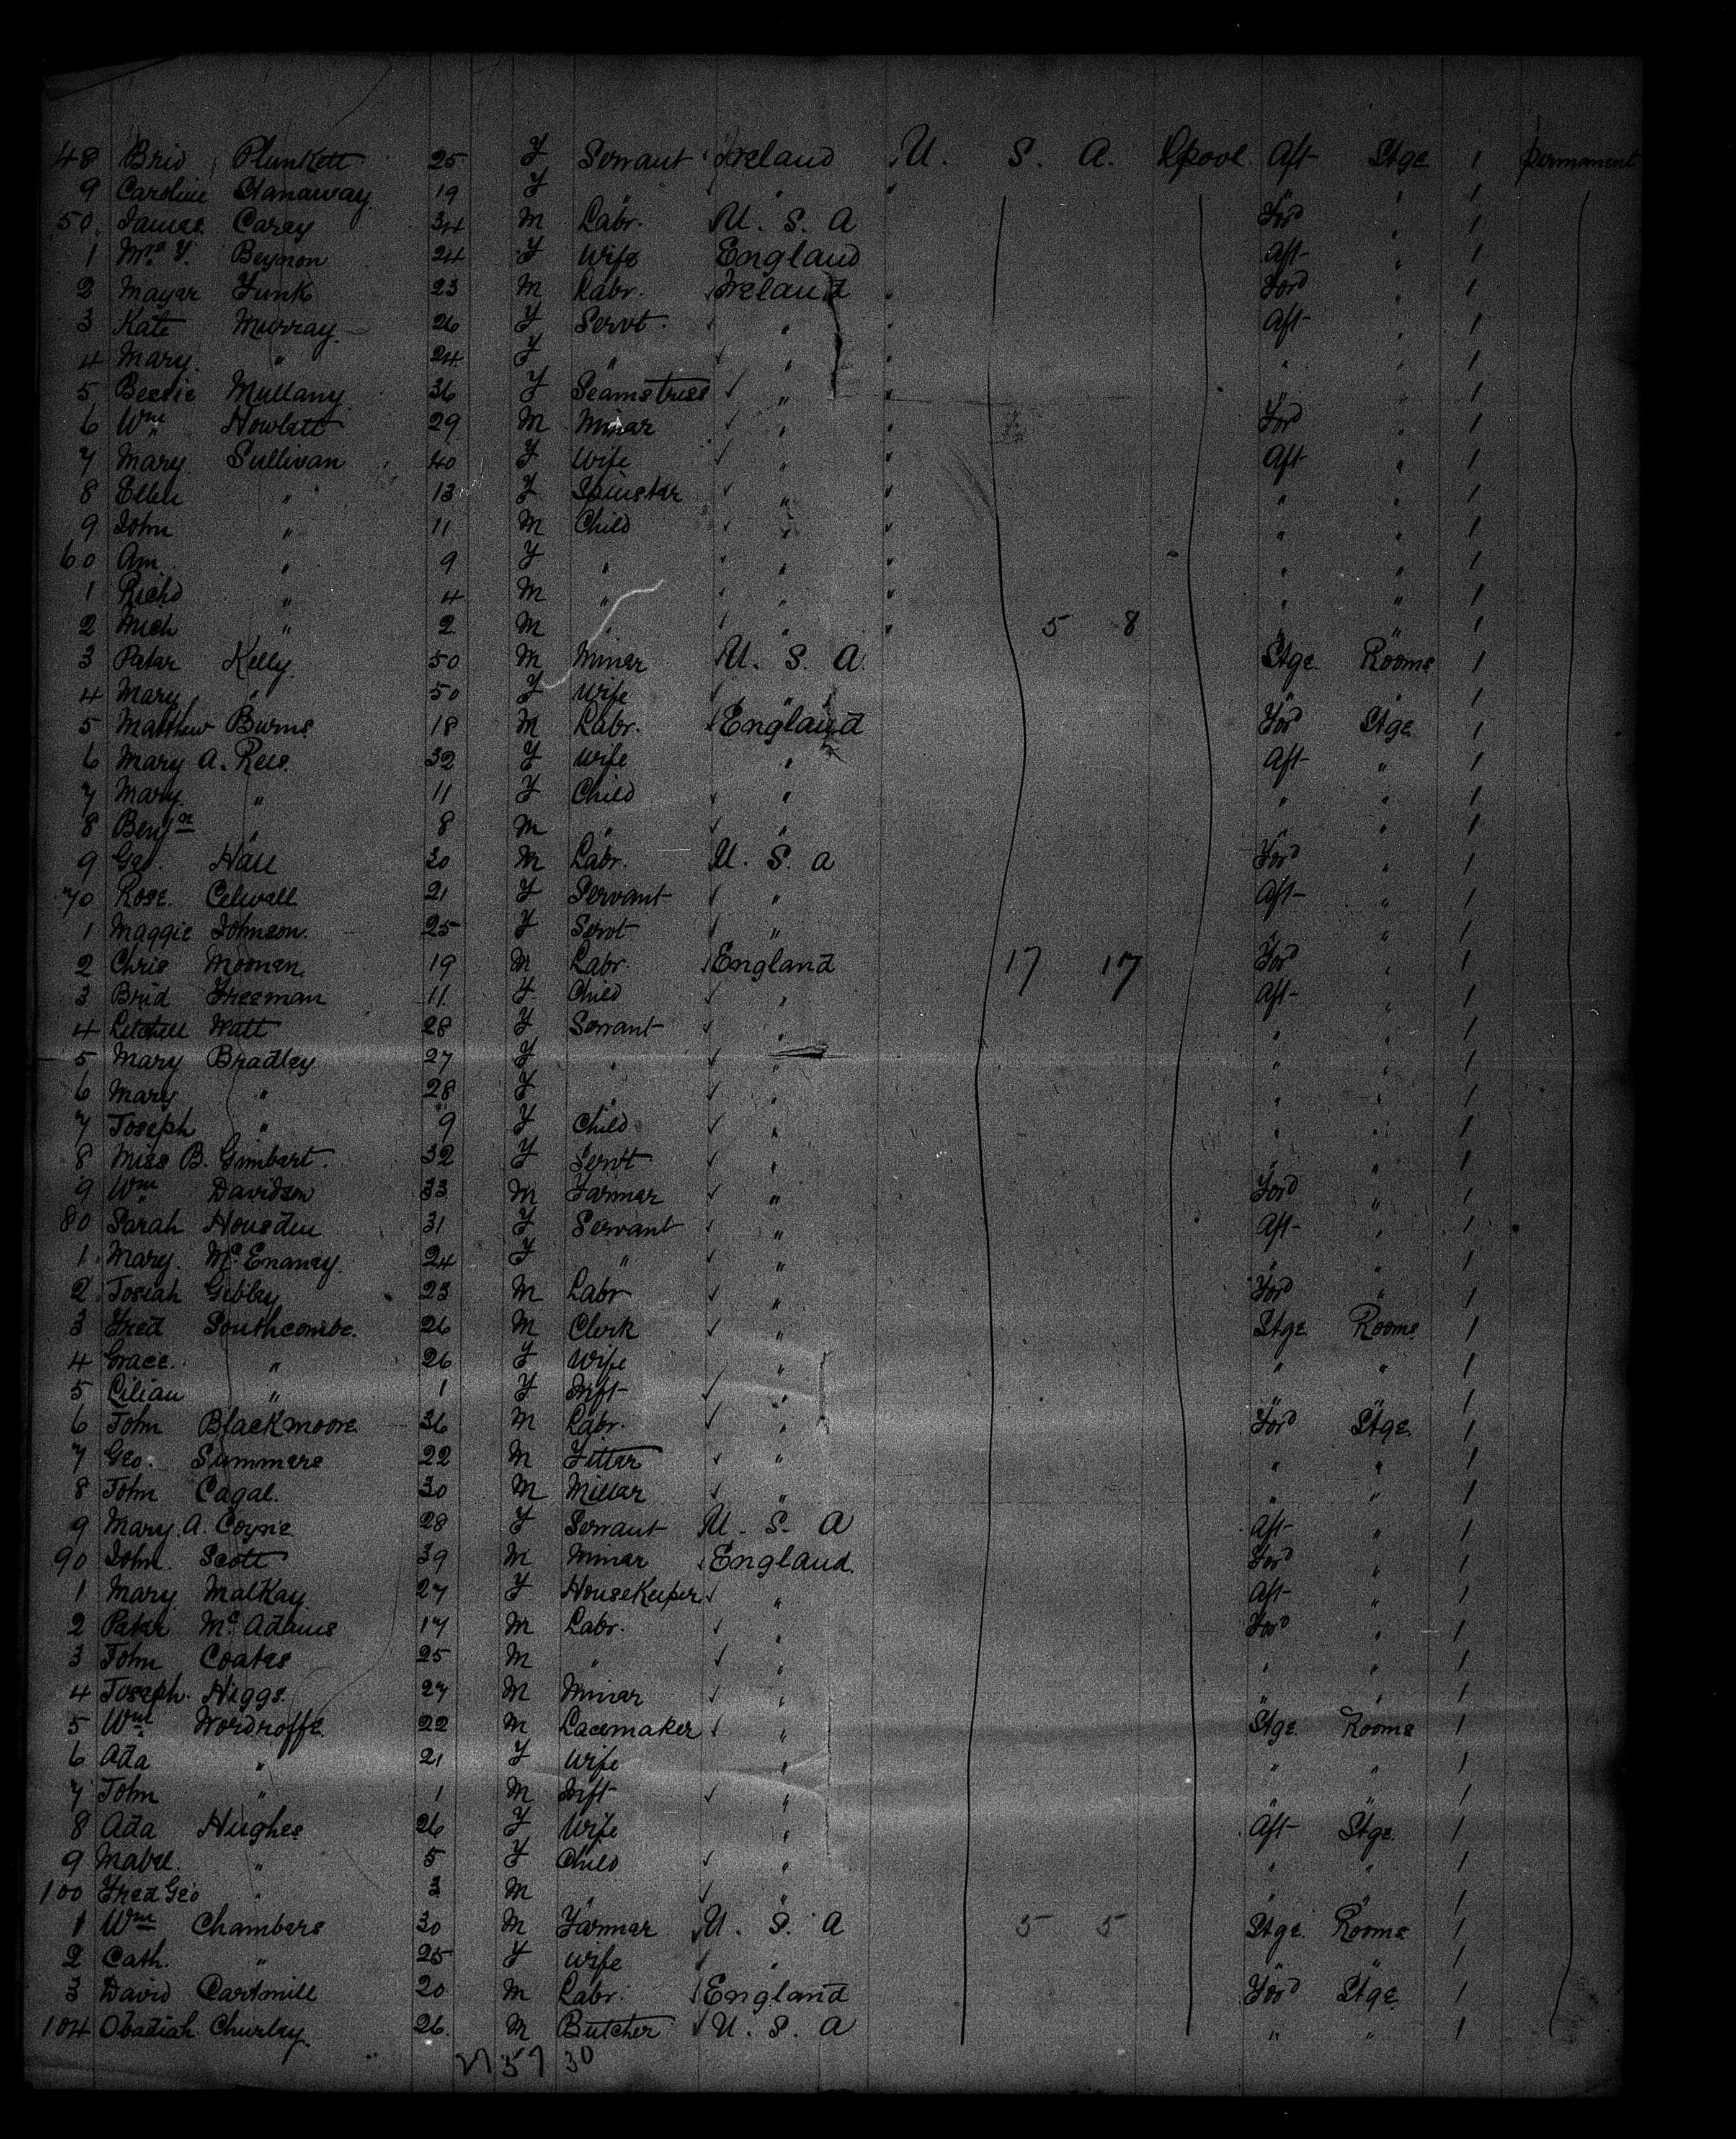 48 Brid Plunkett 25 F Servant Ireland U. S. A. Lpool. Aft Stge 1 permanent
9 Caroline Stanaway 19 F " " " 1
50 James Carey 34 M Labr. U. S. A Ford " 1
1 Mrs Y. Beynon 24 F Wife England Aft " 1
2 Mayer Funk 23 M Labr. Ireland Ford " 1
3 Kate Murray 26 F Servt. " Aft " 1
4 Mary " 24 F " " " " 1
5 Bessie Mullany 36 F Seamstress " " " 1
6 Wm Howlett 29 M Miner " Ford " 1
7 Mary Sullivan 40 F Wife " Aft " 1
8 Ellen " 13 F Spinster " " " 1
9 John " 11 M Child " " " 1
60 Am. " 9 F " " " " 1
1 Richd " 4 M " " " " 1
2 Mich " 2 M " " 5 8 " " 1
3 Peter Kelly 50 M Miner U. S. A. Stge Rooms 1
4 Mary " 50 F Wife " " " 1
5 Matthew Burns 18 M Labr. England Ford Stge 1
6 Mary A. Rees 32 F Wife " Aft " 1
7 Mary " 11 F Child " " " 1
8 Benjn " 8 M " " " " 1
9 Geo. Hall 30 M Labr. U. S. A Ford " 1
70 Rose Celwall 21 F Servant " Aft " 1
1 Maggie Johnson 25 F Servt " " " 1
2 Chris Moonen 19 M Labr. England 17 17 Ford " 1
3 Brid Freeman 11 F Child " Aft " 1
4 Letchell Watt 28 F Servant " " " 1
5 Mary Bradley 27 F " " " " 1
6 Mary " 28 F " " " " 1
7 Joseph " 9 F Child " " " 1
8 Miss B. Gimbert 32 F Servt " " " 1
9 Wm Davidson 33 M Farmer " Ford " 1
80 Sarah Housden 31 F Servant " Aft " 1
1 Mary McEnaney 24 F " " " " 1
2 Josiah Gibley 23 M Labr " Ford " 1
3 Fred Southcombe 26 M Clerk " Stge Rooms 1
4 Grace " 26 F Wife " " " 1
5 Lilian " 1 F Inft " " " 1
6 John Blackmoore 36 M Labr. " Ford Stge 1
7 Geo. Summers 22 M Fitter " " " 1
8 John Cagal. 30 M Miller " " " 1
9 Mary A. Coyne 28 F Servant U. S. A Aft " 1
90 John Scott 39 M Miner England Ford " 1
1 Mary MalKay 27 F HouseKeeper " Aft " 1
2 Peter McAdams 17 M Labr. " Ford " 1
3 John Coates 25 M " " " " 1
4 Joseph Higgs 27 M Miner " " " 1
5 Wm Wordroffe 22 M Lacemaker " Stge Rooms 1
6 Ada " 21 F Wife " " " 1
7 John " 1 M Inft " " " 1
8 Ada Hughes 26 F Wife " Aft Stge 1
9 Mabel " 5 F Child " " " 1
100 Fred Geo " 3 M " " " " 1
1 Wm Chambers 30 M Farmer U. S. A 5 5 Stge Rooms 1
2 Cath. " 25 F Wife " " " 1
3 David Cartmill 20 M Labr. England Ford Stge 1
104 Obadiah Churley 26 M Butcher U. S. A " " 1
27 57 30